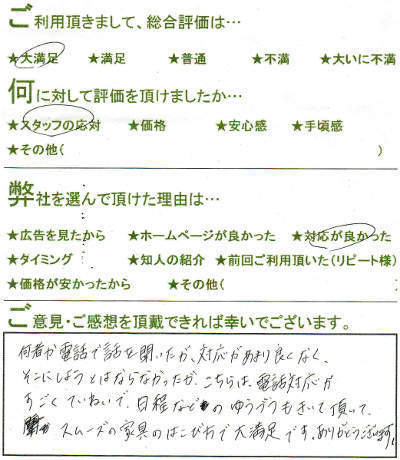 ご利用頂きまして、総合評価は…
★大満足 ★満足 ★普通 ★不満 ★大いに不満
何に対して評価を頂けましたか…
★スタッフの応対 ★価格 ★安心感 ★手頃感
★その他( )
弊社を選んで頂けた理由は…
★広告を見たから ★ホームページが良かった ★対応が良かった
★タイミング ★知人の紹介 ★前回ご利用頂いた(リピート様)
★価格が安かったから ★その他( )
ご意見・ご感想を頂戴できれば幸いでございます。
何者か電話で話を聞いたが、対応があまり良くなく、
そこにしようとはならなかったが、こちらは、電話対応が
すごくていねいで、日程などのゆうづうもきいて頂いて、
スムーズの家具のはこび方で大満足です。ありがとうございます